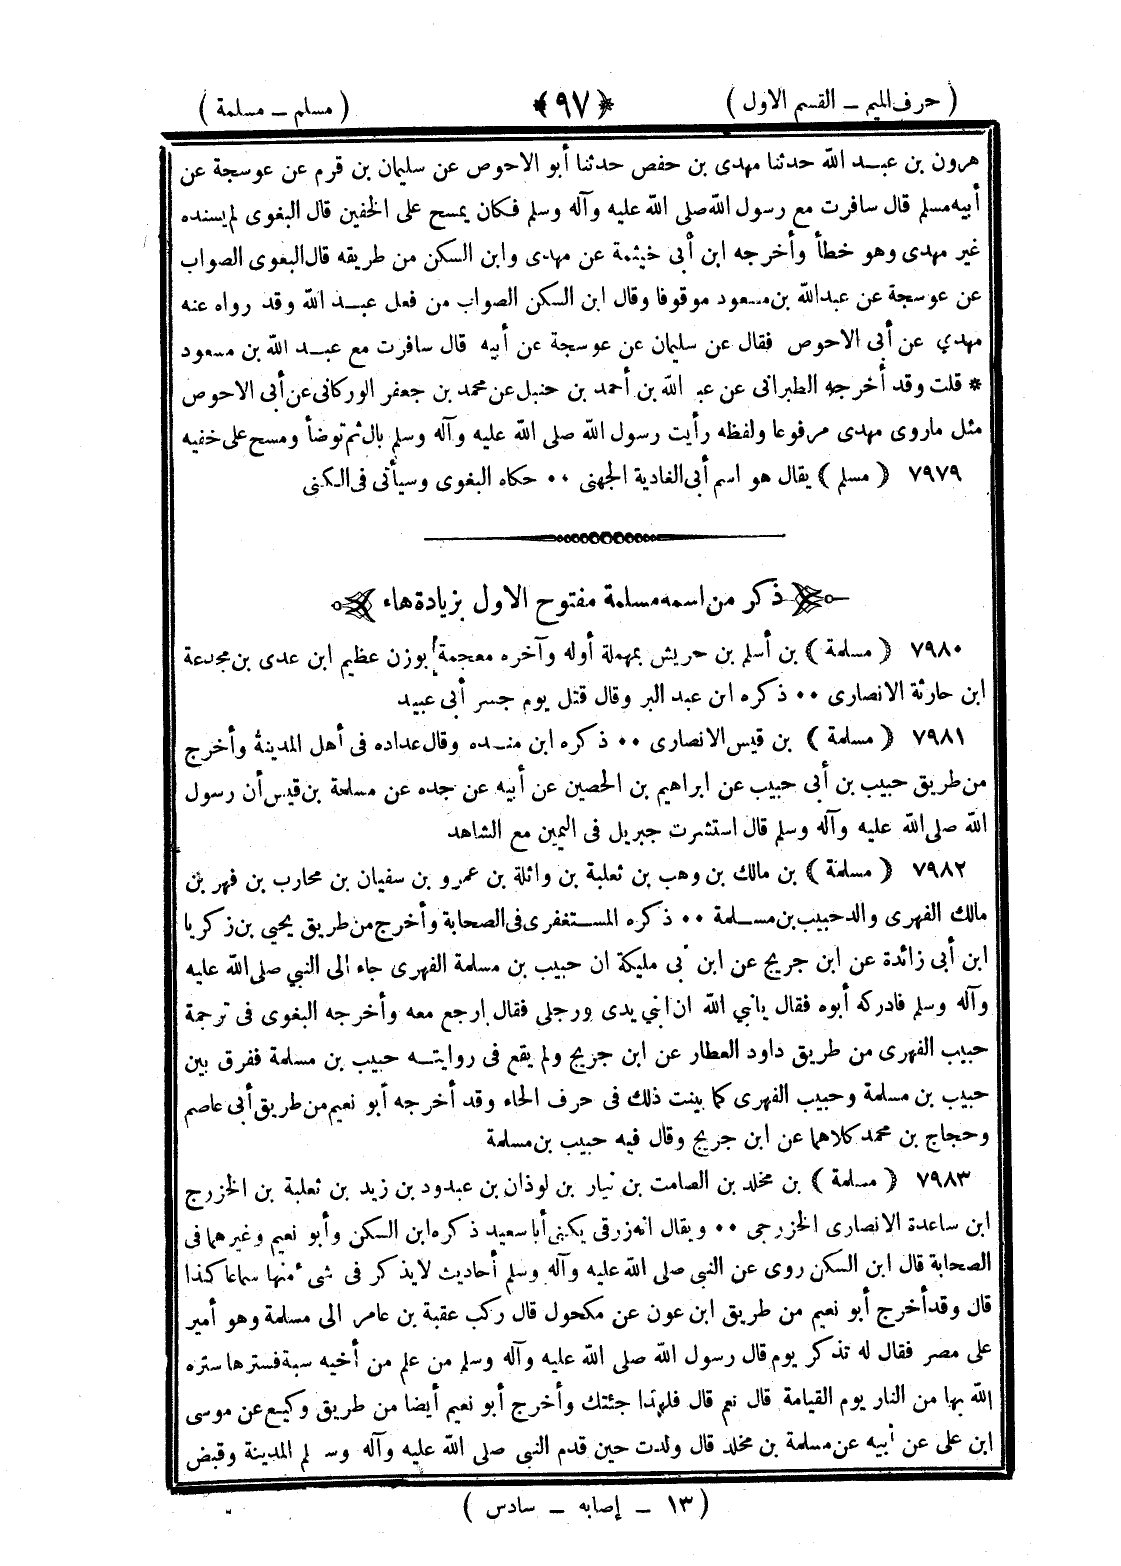 ( حرف الميم ــ القسم الاول ) ﴿ ٩٧ ﴾ ( مسلم ــ مسلمة )
هرون بن عبد الله حدثنا مهدى بن حفص حدثنا أبو الاحوص عن سليمان بن قرم عن عوسجة عن
أبيه مسلم قال سافرت مع رسول الله صلى الله عليه وآله وسلم فكان يمسح على الخفين قال البغوى لم يسنده
غير مهدى وهو خطأ وأخرجه ابن أبى خيثمة عن مهدى وابن السكن من طريقه قال البغوى الصواب
عن عوسجة عن عبدالله بن مسعود موقوفا وقال ابن السكن الصواب من فعل عبد الله وقد رواه عنه
مهدي عن أبى الاحوص فقال عن سليمان عن عوسجة عن أبيه قال سافرت مع عبد الله بن مسعود
* قلت وقد أخرجه الطبرانى عن عبد الله بن أحمد بن حنبل عن محمد بن جعفر الوركانى عن أبى الاحوص
مثل ماروى مهدى مرفوعا ولفظه رأيت رسول الله صلى الله عليه وآله وسلم بال ثم توضأ ومسح على خفيه
٧٩٧٩ ﴿ مسلم ﴾ يقال هو اسم أبى الغادية الجهنى ٠٠ حكاه البغوى وسيأتى فى الكنى
ذكر من اسمه مسلمة مفتوح الاول بزيادة هاء
٧٩٨٠ ﴿ مسلمة ﴾ بن أسلم بن حريش بمهملة أوله وآخره معجمة بوزن عظيم ابن عدى بن مجدعة
ابن حارثة الانصارى ٠٠ ذكره ابن عبد البر وقال قتل يوم جسر أبى عبيد
٧٩٨١ ﴿ مسلمة ﴾ بن قيس الانصارى ٠٠ ذكره ابن منده وقال عداده فى أهل المدينة وأخرج
من طريق حبيب بن أبى حبيب عن ابراهيم بن الحصين عن أبيه عن جده عن مسلمة بن قيس أن رسول
الله صلى الله عليه وآله وسلم قال استشرت جبريل فى اليمين مع الشاهد
٧٩٨٢ ﴿ مسلمة ﴾ بن مالك بن وهب بن ثعلبة بن وائلة بن عمرو بن سفيان بن محارب بن فهر بن
مالك الفهرى والد حبيب بن مسلمة ٠٠ ذكره المستغفرى فى الصحابة وأخرج من طريق يحيى بن زكريا
ابن أبى زائدة عن ابن جريج عن ابن أبى مليكة ان حبيب بن مسلمة الفهرى جاء الى النبي صلى الله عليه
وآله وسلم فادركه أبوه فقال يانبي الله ان ابني يدى ورجلى فقال ارجع معه وأخرجه البغوى فى ترجمة
حبيب الفهرى من طريق داود العطار عن ابن جريج ولم يقع فى روايته حبيب بن مسلمة ففرق بين
حبيب بن مسلمة وحبيب الفهرى كما بينت ذلك فى حرف الحاء وقد أخرجه أبو نعيم من طريق أبى عاصم
وحجاج بن محمد كلاهما عن ابن جريج وقال فيه حبيب بن مسلمة
٧٩٨٣ ﴿ مسلمة ﴾ بن مخلد بن الصامت بن نيار بن لوذان بن عبدود بن زيد بن ثعلبة بن الخزرج
ابن ساعدة الانصارى الخزرجي ٠٠ ويقال انه زرقى يكنى أبا سعيد ذكره ابن السكن وأبو نعيم وغيرهما فى
الصحابة قال ابن السكن روى عن النبي صلى الله عليه وآله وسلم أحاديث لايذكر فى شئ منها سماعا كذا
قال وقد أخرج أبو نعيم من طريق ابن عون عن مكحول قال ركب عقبة بن عامر الى مسلمة وهو أمير
على مصر فقال له تذكر يوم قال رسول الله صلى الله عليه وآله وسلم من علم من أخيه سيئة فسترها ستره
الله بها من النار يوم القيامة قال نعم قال فلهذا جئتك وأخرج أبو نعيم أيضا من طريق وكيع عن موسى
ابن على عن أبيه عن مسلمة بن مخلد قال ولدت حين قدم النبي صلى الله عليه وآله وسلم المدينة وقبض
( ١٣ ــ إصابه ــ سادس )